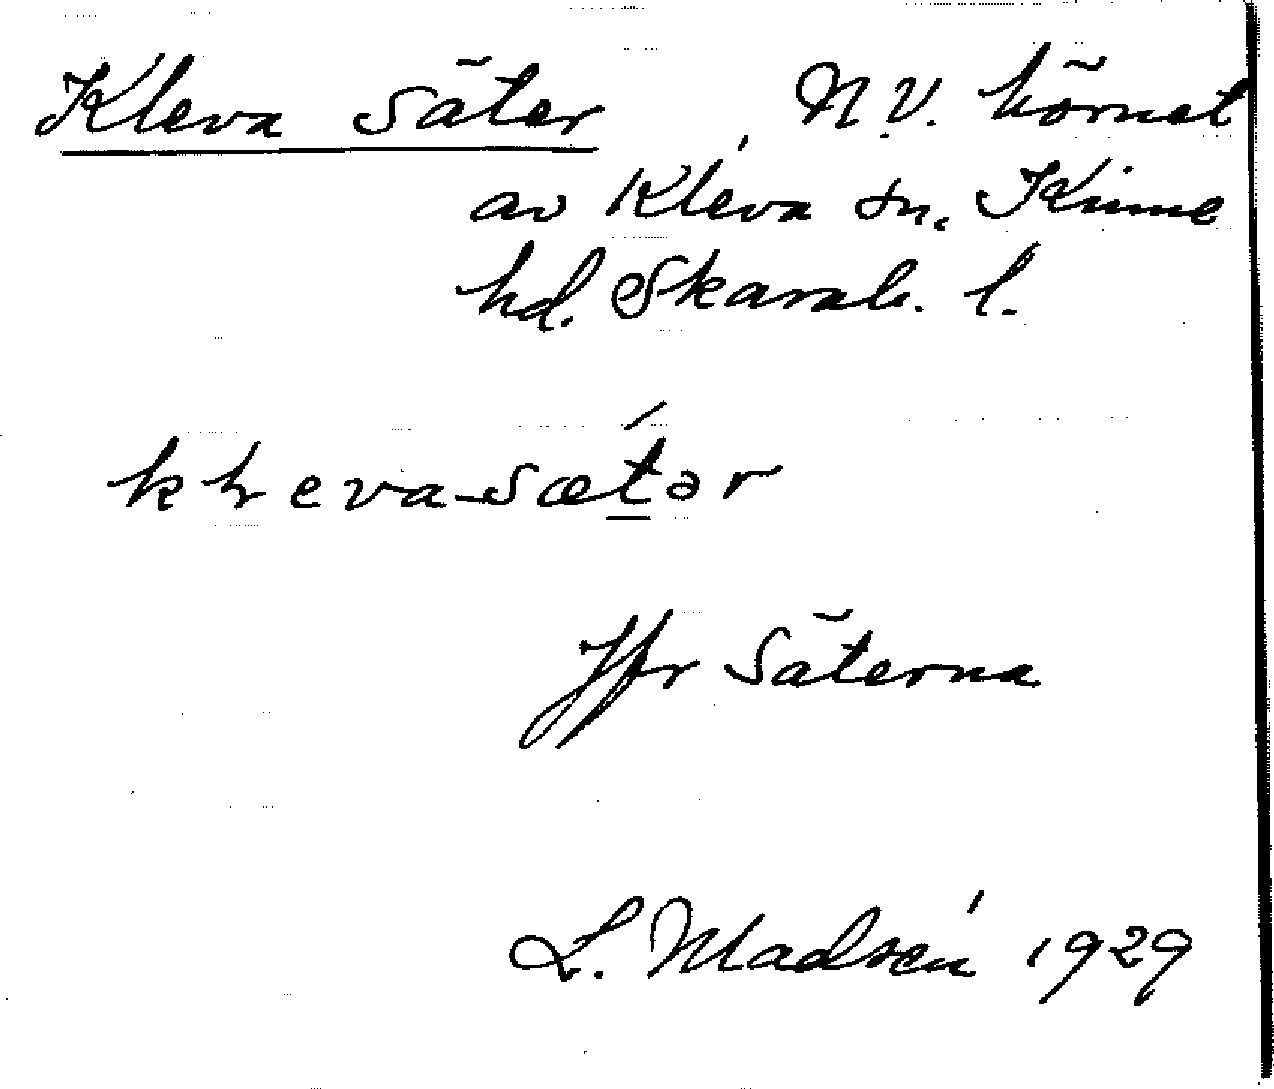 Kleva Säter, N.V. hörnet
av Kleva sn. Kinne
hd. Skarab. l.
kɫevasæt́ər
Jfr Säterna
L. Madsén 1929